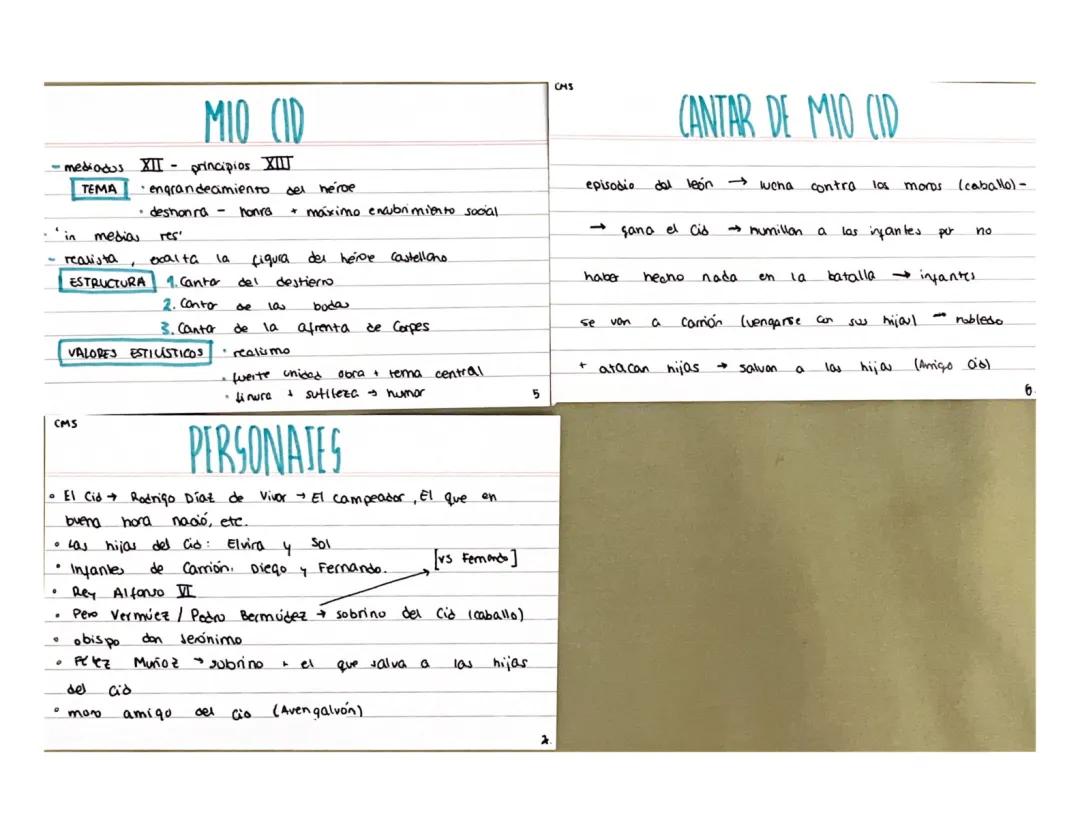 MIO CID
- mediados XII - principios XIII
TEMA · engrandecimiento del héroe
· deshonra - honra + máximo enubrimiento social
- 'in medias res'
- realista, exalta la figura del héroe castellano
ESTRUCTURA 1. Cantar del destierro
2. Cantar de las bodas
3. Cantar de la afrenta de Corpes
VALORES ESTILÍSTICOS · realismo
· fuerte unidad obra + tema central
· finura + sutileza → humor
5
CMS
CANTAR DE MIO CID
episodio del león → lucha contra los moros (caballo) -
→ gana el Cid → humillan a los infantes por no
haber hecho nada en la batalla → infantes
se van a Carrión (vengarse con sus hijas) → robledo
+ atacan hijas → salvan a las hijas (Amigo Cid)
6.
CMS
PERSONAJES
• El Cid → Rodrigo Díaz de Vivar → El campeador, El que en
buena hora nació, etc.
• Las hijas del Cid: Elvira y Sol
• Infantes de Carrión. Diego y Fernando. [vs Fernando]
• Rey Alfonso VI
• Pero Vermúez / Pedro Bermúdez → sobrino del Cid (caballo)
• obispo don Jerónimo
• Félez Muñoz → sobrino + el que salva a las hijas
del Cid
• moro amigo del Cid (Avengalvón)